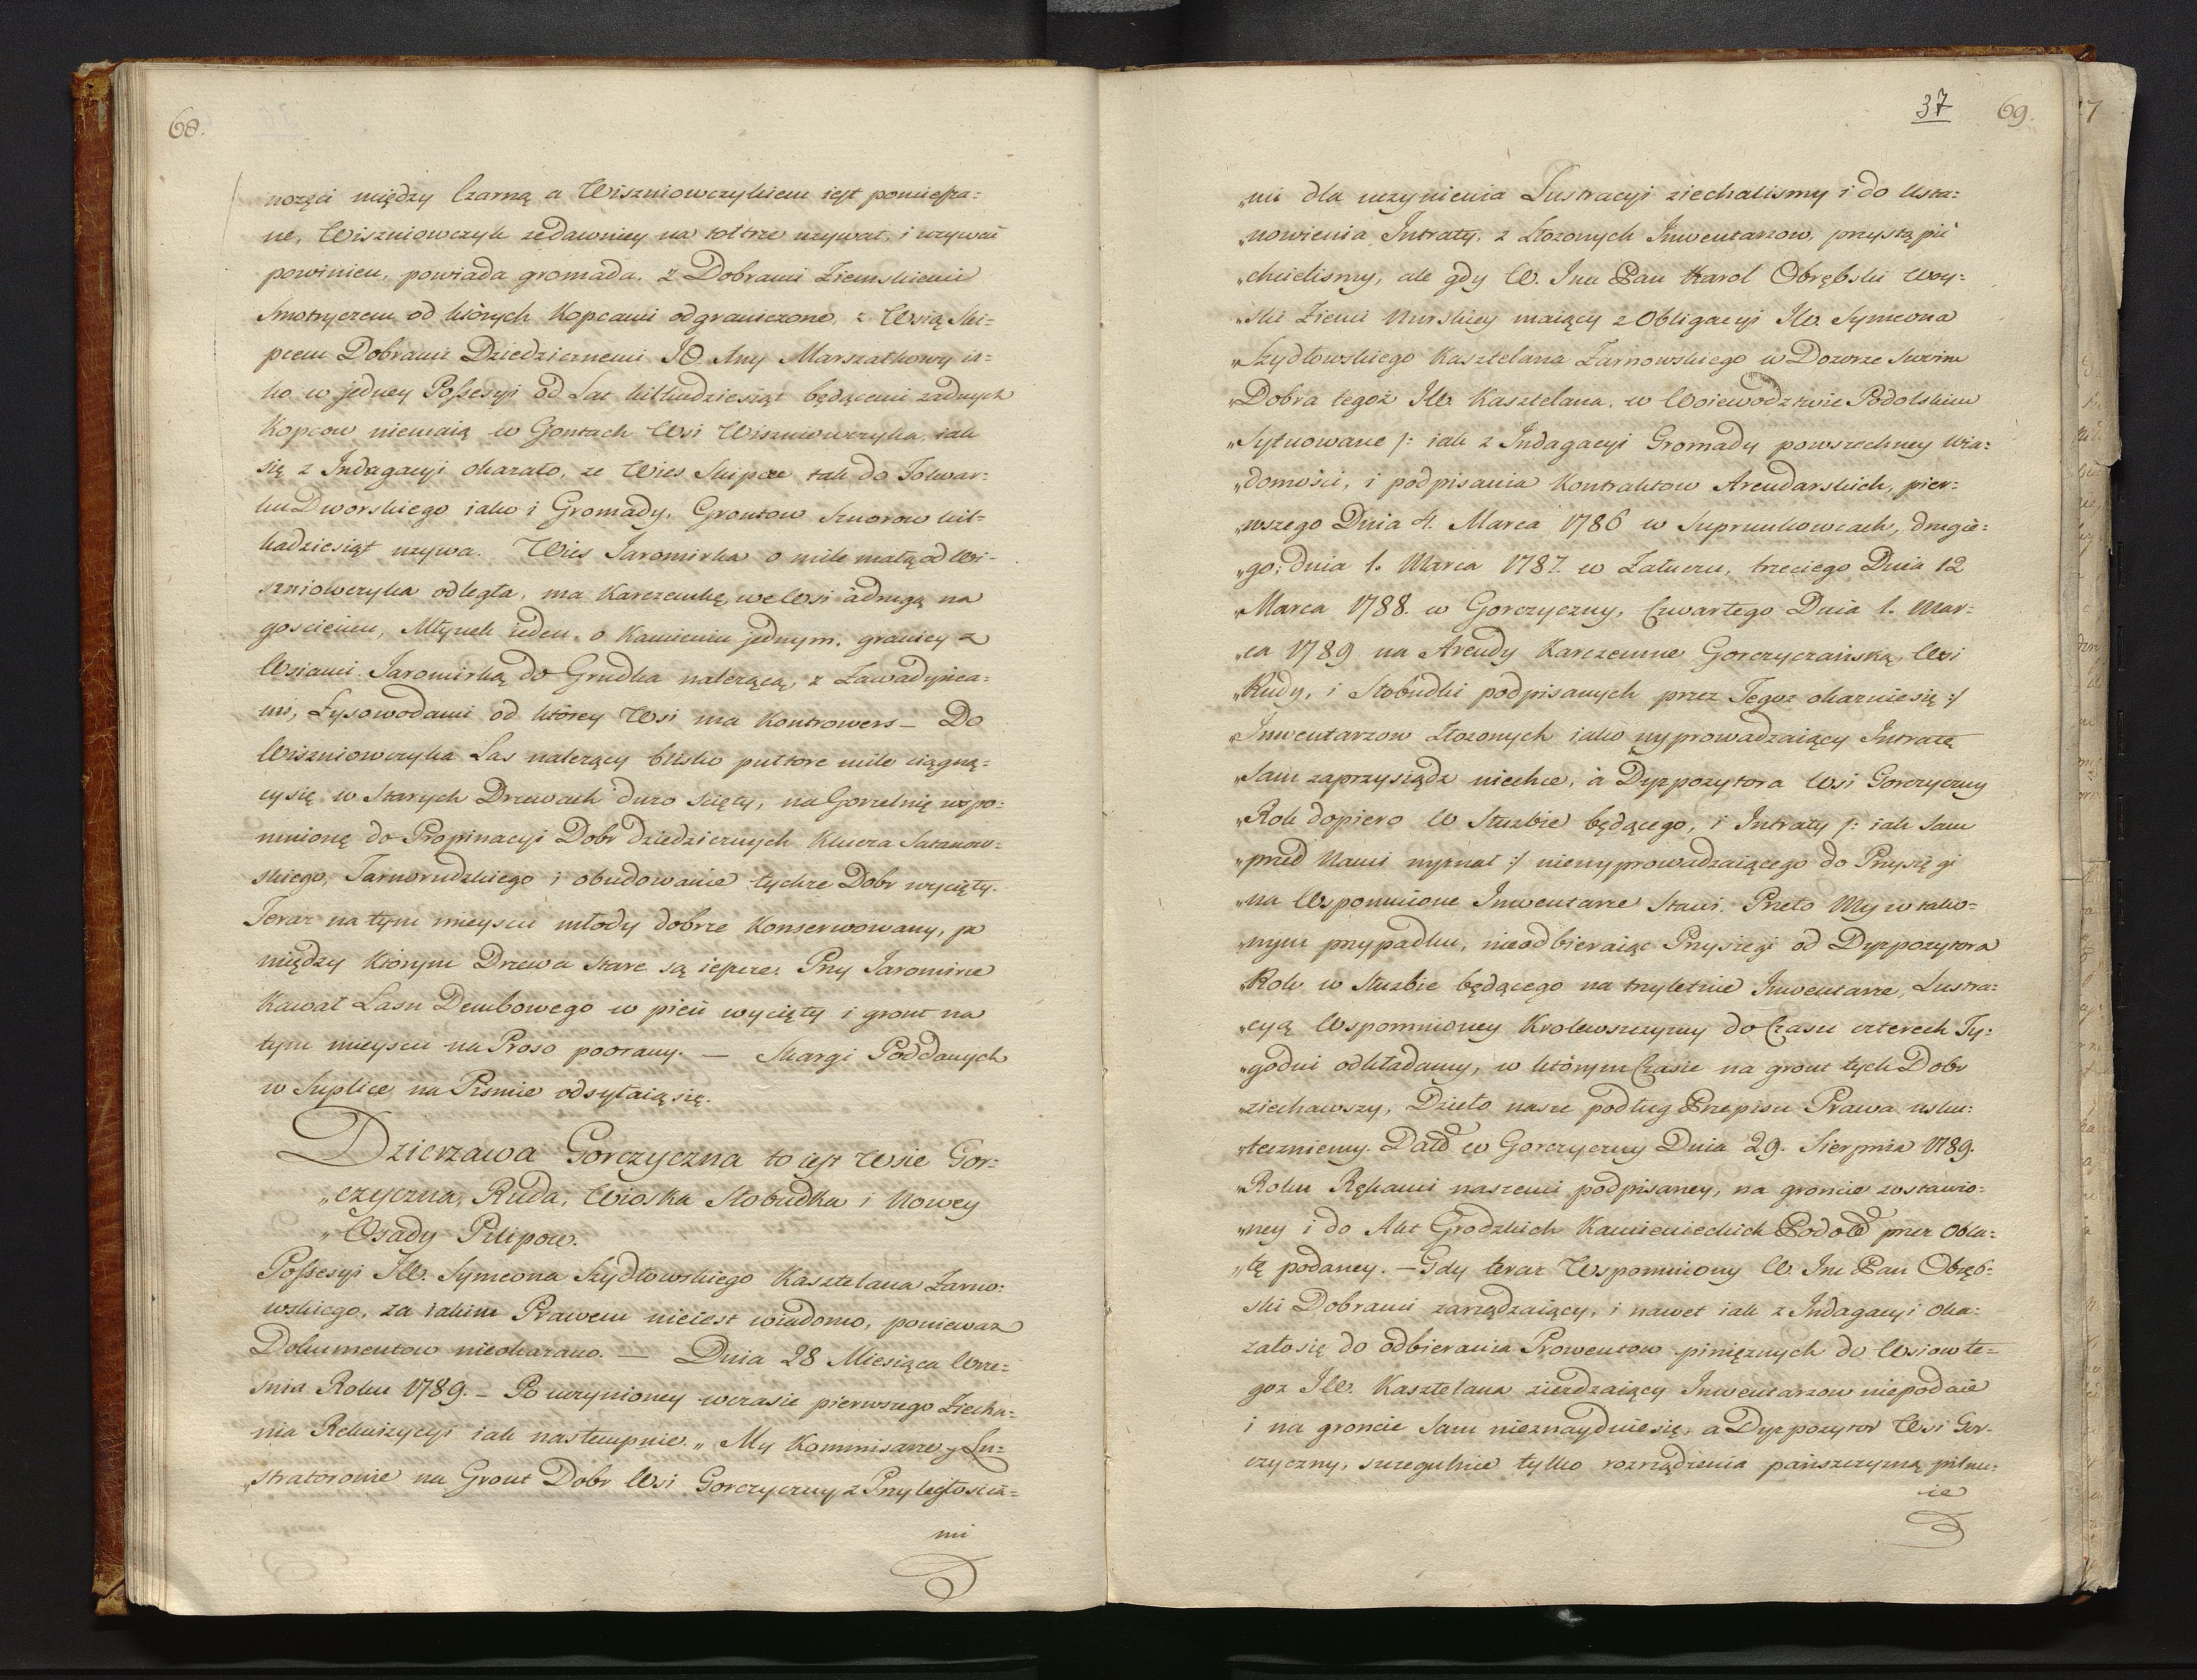 68.
nozęci między Czarną a Wiszniowczykiem iest pomiesza=
ne, Wiszniowczyk zedawniey na tołtrze używał, i używać
powinien, powiada gromada. z Dobrami Ziemskiemi
Smotryczem od których Kopcami odgraniczone, z Wsią Ski=
pcem Dobrami Dziedzicznemi JO Xny Marszałkowy ia=
ko w jedney Possesyi od Lat kilkudziesiąt będącemi żadnych
Kopcow niemaią w Gontach Wsi Wiszniowczyka, iak
się z Indagacyi okazało, ze Wies Skipce tak do Folwar=
ku Dworskiego iako i Gromady, Grontow Sznorow kil=
kadziesiąt używa. Wies Jaromirka o mile małą od Wi=
szniowczyka odległa, ma Karczemkę, we Wsi a drugą na
goscieńcu, Młynek ieden o Kamieniu jednym. graniczy z
Wsiami Jaromirką do Grudka nalezącą, z Zawadyńca=
mi, Łysowodami od którey Wsi ma Kontrowers — Do
Wiszniowczyka Las nalezący blisko pułtore mile ciągną=
cy się w Starych Drzewach duzo ścięty, na Gorzelnię wspo=
mnionę do Propinacyi Dobr dziedzicznych Klucza Satanow=
skiego, Tarnorudzkiego i obudowanie tychze Dobr wycięty.
Teraz na tym mieyscu młody dobrze Konserwowany, po
między którym Drzewa Stare są ieszcze. Przy Jaromirce
Kawał Lasu Dembowego w pień wycięty i gront na
tym mieyscu na Proso poorany. — Skargi Poddanych
w Suplice na Pismie odsyłaią się.
Dzierzawa Gorczyczna to iest Wsie Gor=
„czyczna, Ruda, Wioska Słobudka i Nowey
„Osady Pilipow.
Possesyi JW. Symeona Szydłowskiego Kasztelana Żarno=
wskiego, za iakim Prawem nieiest wiadomo, poniewaz
Dokumentow nieokazano. — Dnia 28 Miesiąca Wrze=
śnia Roku 1789. – Po uczynioney wczasie pierwszego Ziecha=
nia Rekwizycyi iak nastempnie „ My Kommisarze y Lu=
„stratorowie na Gront Dobr Wsi Gorczyczny z Przyległościa=
mi
37 69.
„mi dla uczynienia Lustracyi ziechalismy i do Usta=
„nowienia Intraty, z Złozonych Inwentarzow, przystąpić
„chcielismy, ale gdy W. Jmc Pan Karol Obrębski Woy=
„ski Ziemi Nurskiey maiący z Obligacyi JW. Symeona
„Szydłowskiego Kasztelana Żarnowskiego w Dozorze Swoim
„Dobra tegoż JW. Kasztelana, w Woiewodztwie Podolskim
„Sytuowane /: iak z Indagacyi Gromady powszechney Wia=
„domości, i podpisania Kontraktow Arendarskich, pier=
„wszego Dnia 4. Marca 1786 w Suprunkowcach, drugie=
„go; dnia 1. Marca 1787. w Załuczu, trzeciego Dnia 12
„Marca 1788. w Gorczyczny, Czwartego Dnia 1. Mar=
„ca 1789 na Arendy Karczemne Gorczyczańską, Wsi
„Rudy, i Słobudki podpisanych przez Tegoz okazuie się :/
„Inwentarzow Złozonych iako wyprowadzaiący Intratę
„Sam zaprzysiądz niechce, à Dyzpozytora Wsi Gorczyczny
„Rok dopiero w Służbie będącego, i Intraty /: iak Sam
„przed Nami wyznał :/ niewyprowadzaiącego do Przysięgi
„na Wspomnione Inwentarze Stawi. Przeto My w tako=
„wym przypadku, nieodbieraiąc Przysięgi od Dyzpozytora
„Rok w Służbie będącego na trzyletnie Inwentarze, Lustra=
„cyą Wspomnioney Krolewszczyzny do Czasu czterech Ty=
„godni odkładamy, w którym Czasie na gront tych Dobr
„ziechawszy, Dzieło nasze podług Przepisu Prawa usku=
„teczniemy. Datt w Gorczyczny Dnia 29. Sierpnia 1789.
„Roku Rękami naszemi podpisaney, na groncie zostawio=
„ney i do Akt Grodzkich Kamienieckich Podol przez Obla=
„tę podaney. — Gdy teraz Wspomniony W. Jmc Pan Obręb=
ski Dobrami zarządzaiący, i nawet iak z Indagacyi oka=
zało się do odbierania Prowentow pinięznych do Wsiow te=
goz JW. Kasztelana ziezdzaiący Inwentarzow niepodaie
i na groncie Sam nieznayduie się, a Dyzpozytor Wsi Gor=
czyczny, szczegulnie tylko rozrządzenia pańszczyzną pilnu=
ie